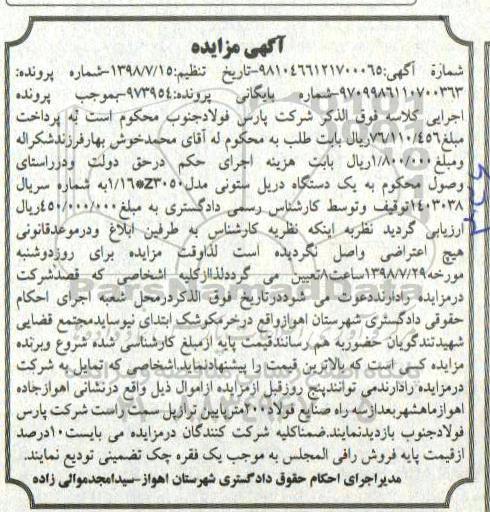 آگهی مزایده
شماره آگهی:۹۸۱۰۴۶۶۱۲۱۷۰۰۰۶۵-تاریخ تنظیم:۱۳۹۸/۷/۱۵-شماره پرونده:
۹۷۰۹۹۸۶۱۱۰۷۰۰۳۶۳-شماره بایگانی پرونده:۹۷۳۹۵۴-بموجب پرونده
اجرایی کلاسه فوق الذکر شرکت پارس فولادجنوب محکوم است به پرداخت
مبلغ۷۶/۱۱۰/۴۵۶ریال بابت طلب به محکوم له آقای محمدخوش بهارفرزندشکراله
ومبلغ۱/۸۰۰/۰۰۰ریال بابت هزینه اجرای حکم درحق دولت ودرراستای
وصول محکوم به یک دستگاه دریل ستونی مدل Z۳۰۵۰*۱/۱۶به شماره سریال
۱۴۰۳۰۳۸توقیف وتوسط کارشناس رسمی دادگستری به مبلغ۴۵۰/۰۰۰/۰۰۰ریال
ارزیابی گردید نظربه اینکه نظریه کارشناس به طرفین ابلاغ ودرموعدقانونی
هیچ اعتراضی واصل نگردیده است لذاوقت مزایده برای روزدوشنبه
مورخه۱۳۹۸/۷/۲۹ساعت۸تعیین می گرددلذاازکلیه اشخاصی که قصدشرکت
درمزایده رادارنددعوت می شوددرتاریخ فوق الذکردرمحل شعبه اجرای احکام
حقوقی دادگستری شهرستان اهوازواقع درخرمکوشک ابتدای نیوسایدمجتمع قضایی
شهیدتندگویان حضوربه هم رسانندقیمت پایه ازمبلغ کارشناسی شده شروع وبرنده
مزایده کسی است که بالاترین قیمت را پیشنهادنمایداشخاصی که تمایل به شرکت
درمزایده رادارندمی توانندپنج روزقبل ازمزایده ازاموال ذیل واقع درنشانی اهوازجاده
اهوازماهشهربعدازسه راه صنایع فولاد۲۰۰مترپایین ترازپل سمت راست شرکت پارس
فولادجنوب بازدیدنمایند.ضمناکلیه شرکت کنندگان درمزایده می بایست۱۰درصد
ازقیمت پایه فروش رافی المجلس به موجب یک فقره چک تضمینی تودیع نمایند.
مدیراجرای احکام حقوق دادگستری شهرستان اهواز-سیدامجدموالی زاده
ParsNamadData